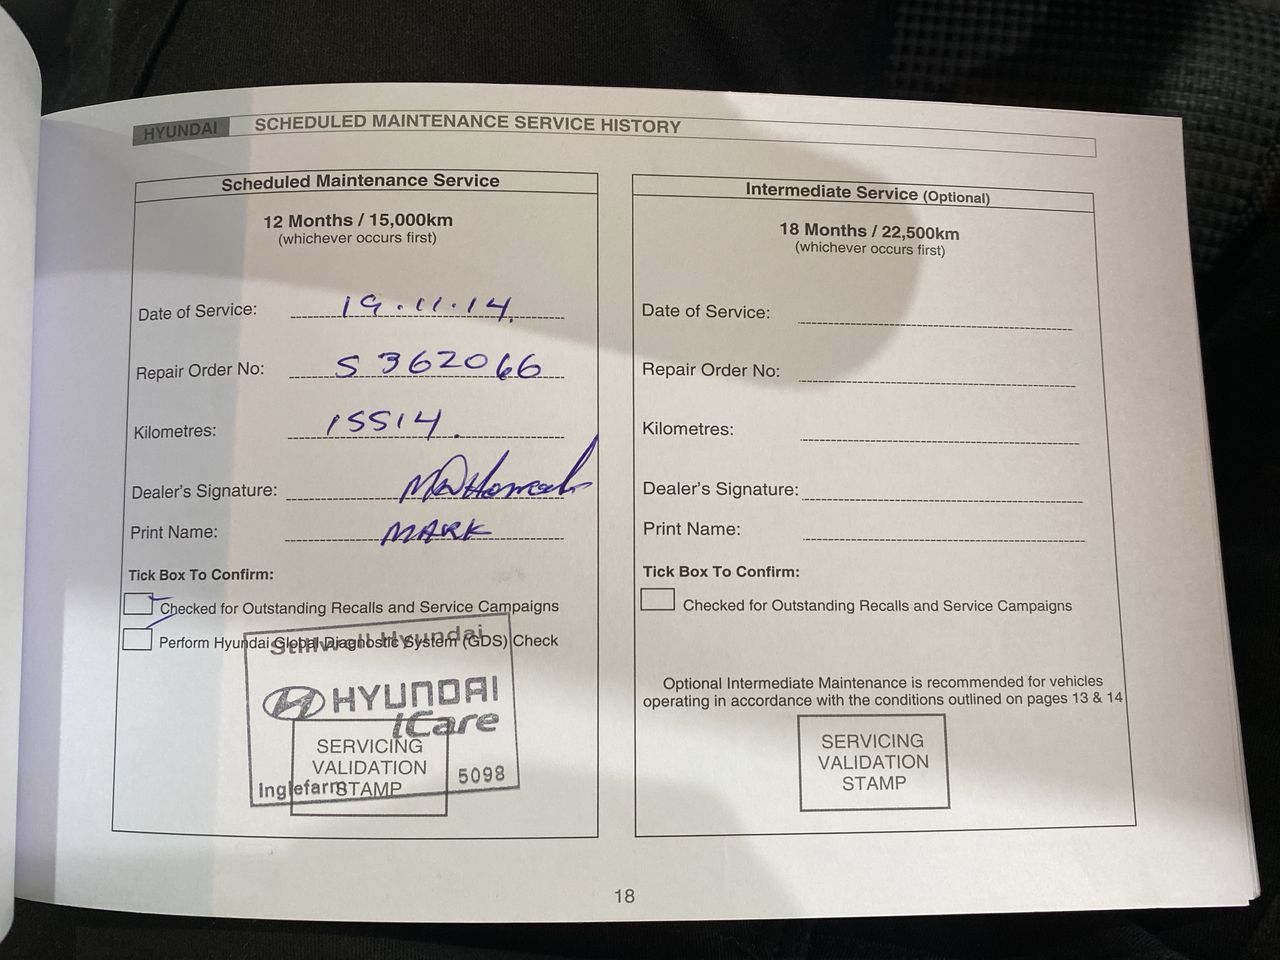 HYUNDAI SCHEDULED MAINTENANCE SERVICE HISTORY
Scheduled Maintenance Service
12 Months / 15,000km
(whichever occurs first)
Date of Service: 19.11.14.
Repair Order No: S 362066
Kilometres: 15514.
Dealer's Signature:
Print Name: MARK
Tick Box To Confirm:
Checked for Outstanding Recalls and Service Campaigns
Perform Hyundai Global Diagnostic System (GDS) Check
Stillwell Hyundai
HYUNDAI
iCare
SERVICING
VALIDATION
STAMP
Inglefarm 5098
Intermediate Service (Optional)
18 Months / 22,500km
(whichever occurs first)
Date of Service:
Repair Order No:
Kilometres:
Dealer's Signature:
Print Name:
Tick Box To Confirm:
Checked for Outstanding Recalls and Service Campaigns
Optional Intermediate Maintenance is recommended for vehicles
operating in accordance with the conditions outlined on pages 13 & 14
SERVICING
VALIDATION
STAMP
18